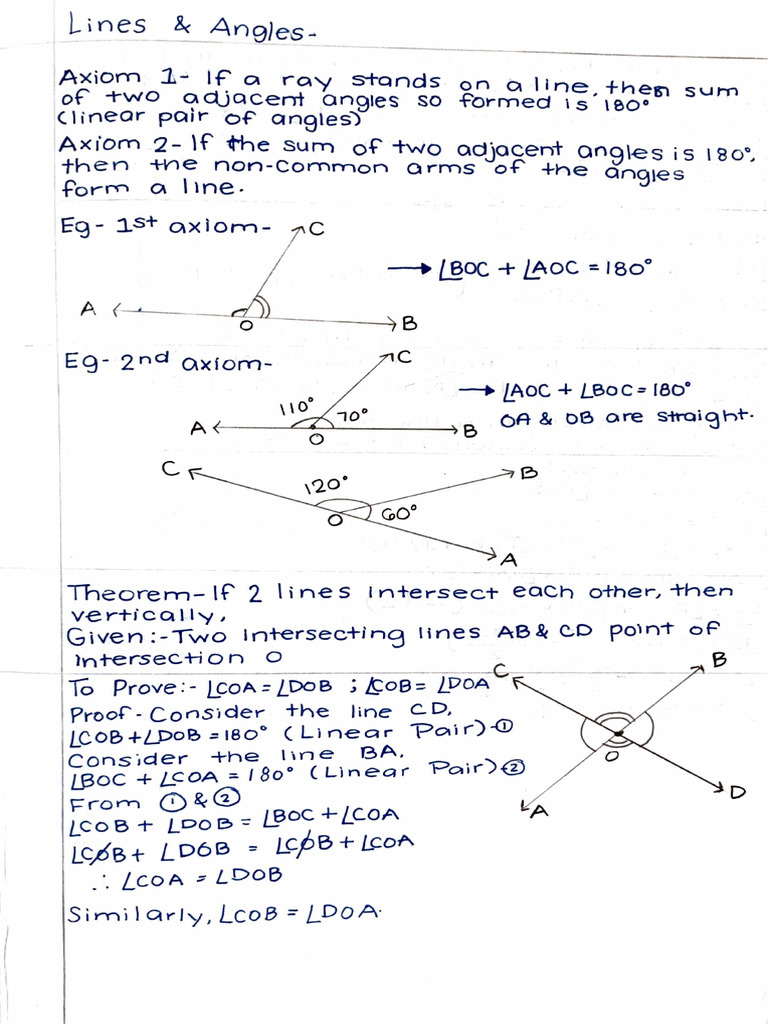 Lines & Angles-
Axiom 1- If a ray stands on a line, then sum
of two adjacent angles so formed is 180°
(linear pair of angles)
Axiom 2- If the sum of two adjacent angles is 180°,
then the non-common arms of the angles
form a line.
Eg- 1st axiom-
C
→ ∠BOC + ∠AOC = 180°
A
O
B
Eg- 2nd axiom-
C
→ ∠AOC + ∠BOC = 180°
110° 70°
OA & OB are straight.
A
O
B
C
120°
B
O
60°
A
Theorem- If 2 lines intersect each other, then
vertically,
Given:- Two intersecting lines AB & CD point of
intersection O
To Prove:- ∠COA = ∠DOB ; ∠COB = ∠DOA
Proof - Consider the line CD,
∠COB + ∠DOB = 180° (Linear Pair)-①
Consider the line BA,
∠BOC + ∠COA = 180° (Linear Pair)-②
From ① & ②
∠COB + ∠DOB = ∠BOC + ∠COA
∠COB + ∠DOB = ∠COB + ∠COA
∴ ∠COA = ∠DOB
Similarly, ∠COB = ∠DOA.
C
B
O
A
D